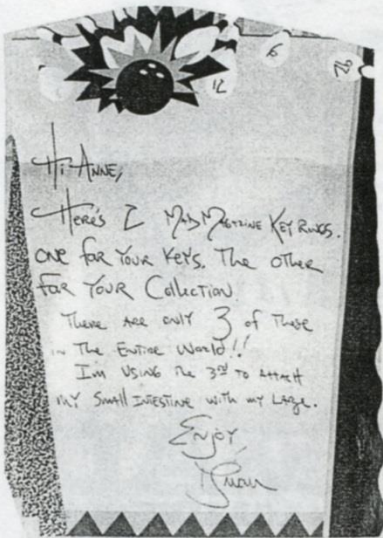 12
6
Hi Anne,
Here's 2 Mad Magazine Key Rings.
One for your keys. The other
for your Collection.
There are only 3 of these
in The Entire World!!
Im using the 3rd to attach
my small intestine with my large.
Enjoy